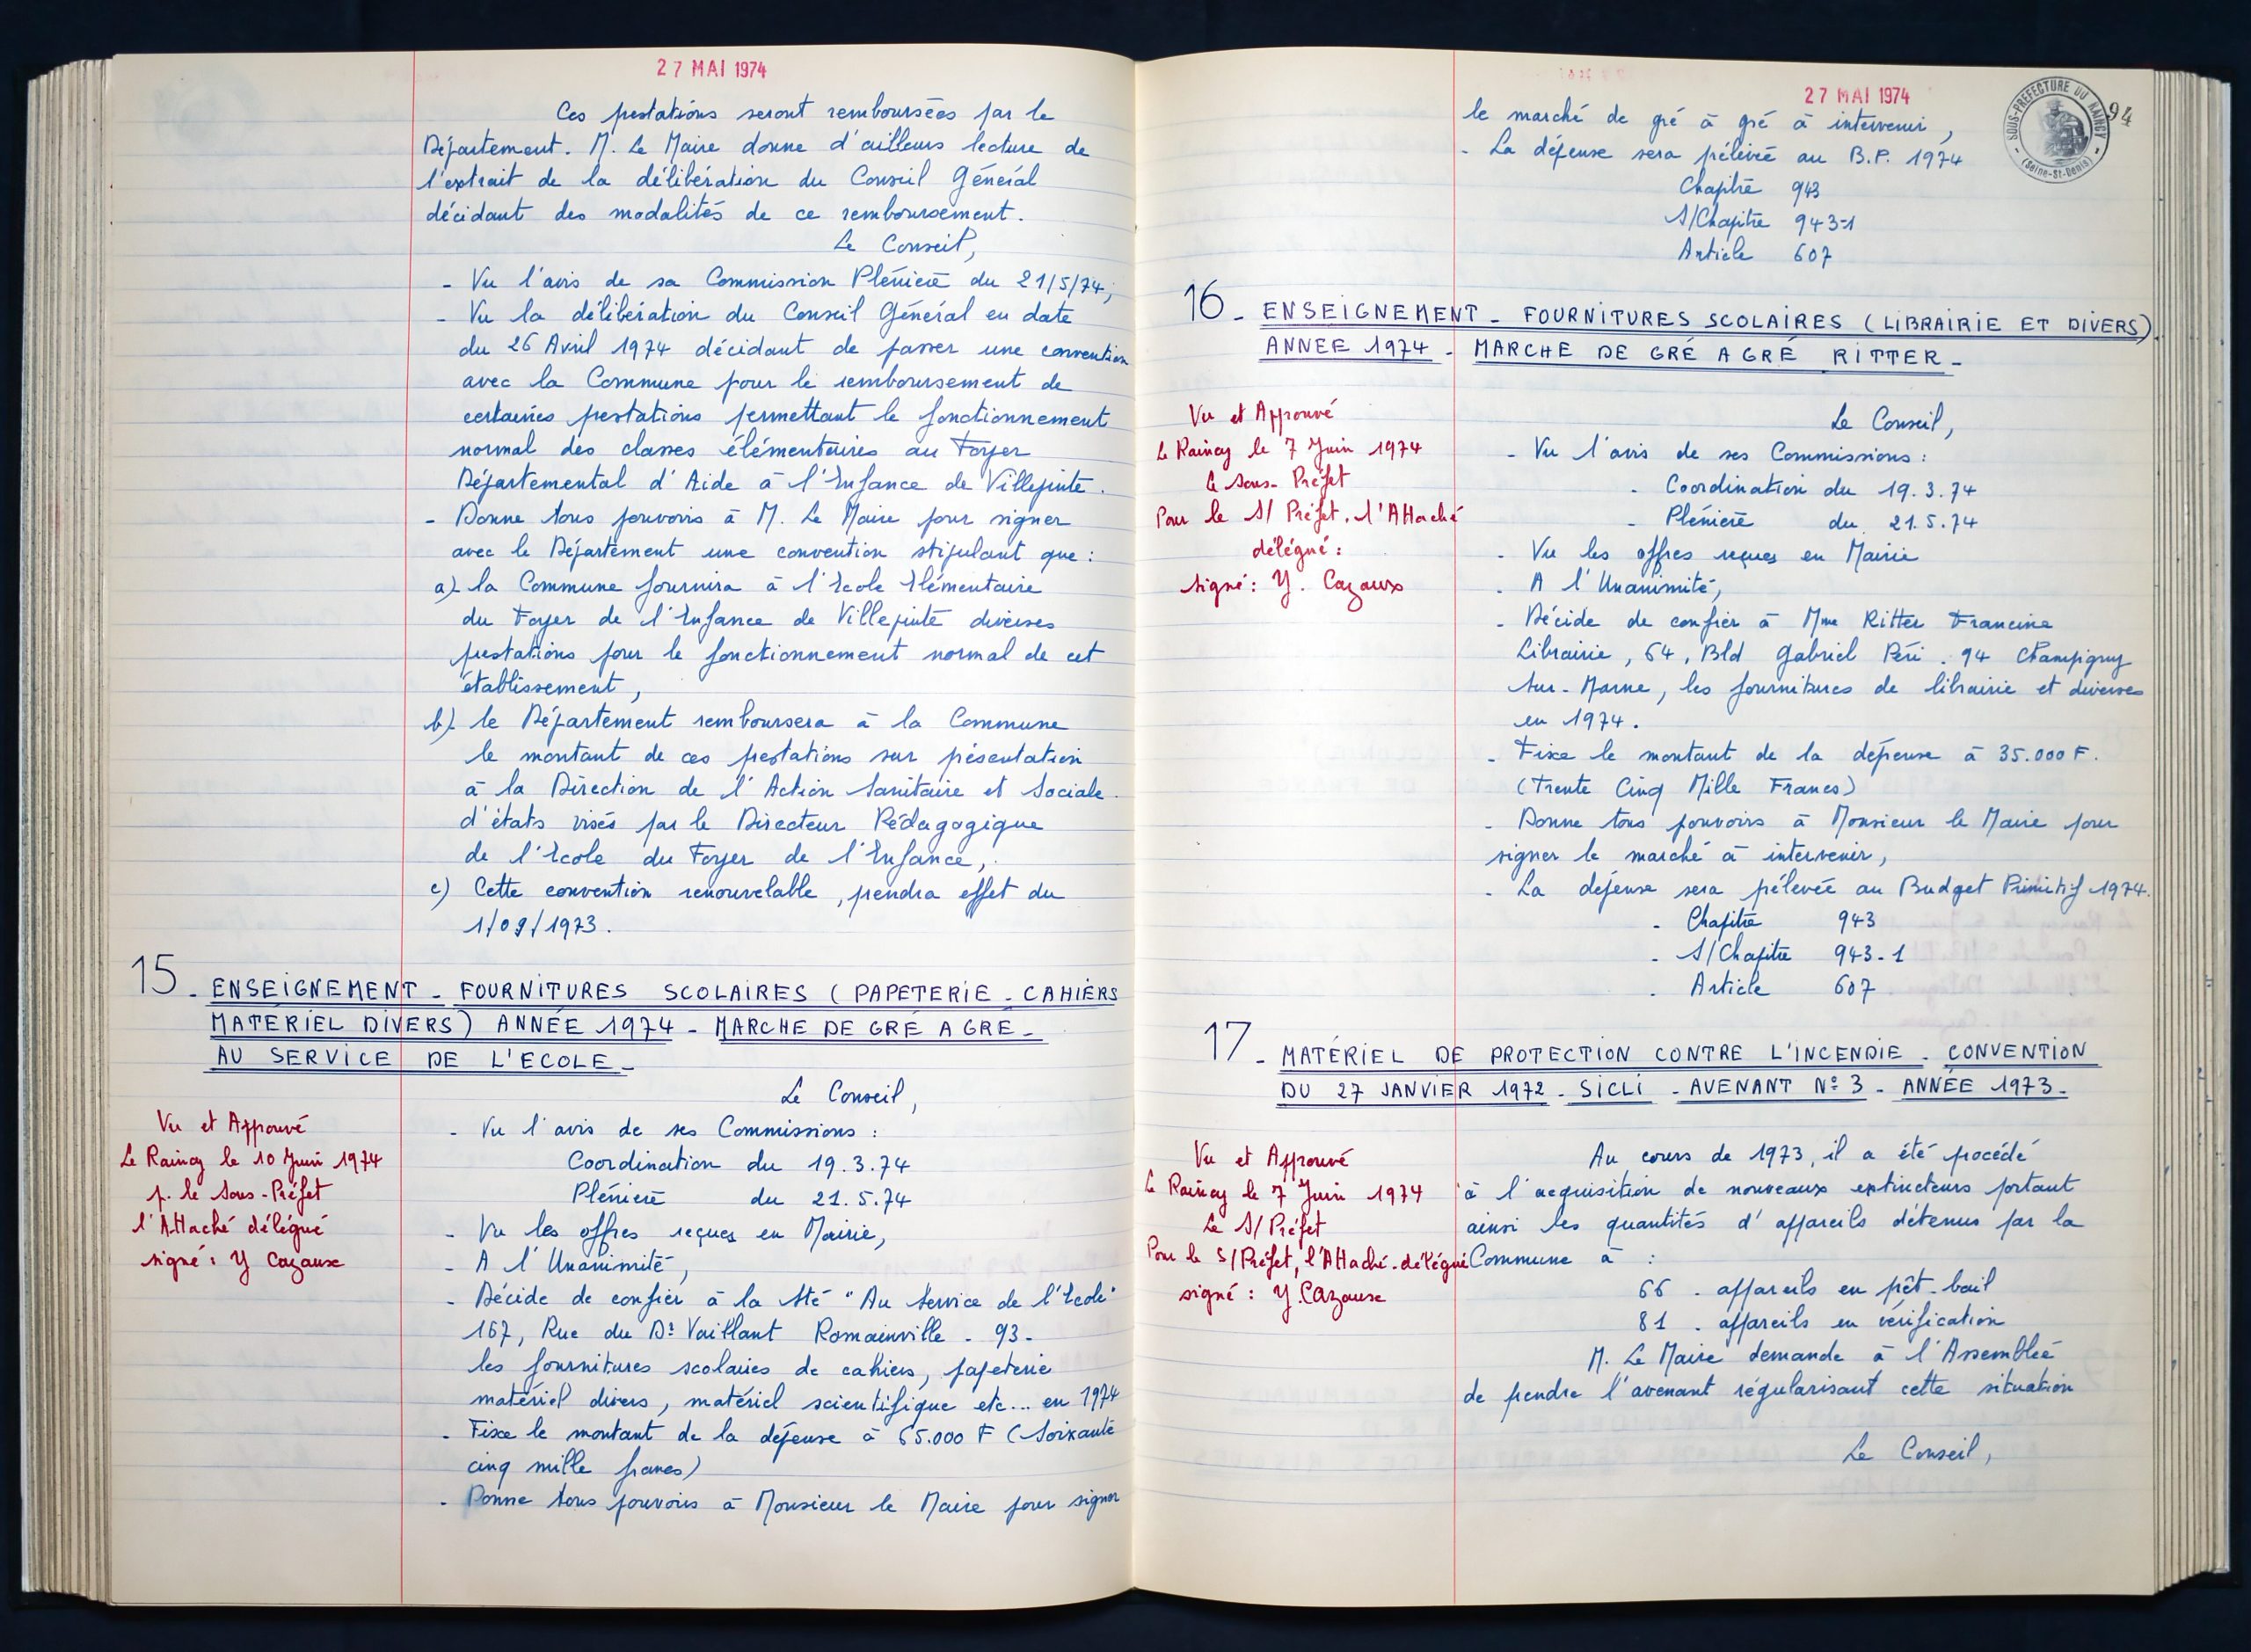 27 MAI 1974
Ces prestations seront remboursées par le
Département. M. Le Maire donne d'ailleurs lecture de
l'extrait de la délibération du Conseil Général
décidant des modalités de ce remboursement.
Le Conseil,
- Vu l'avis de sa Commission Plénière du 21/5/74,
- Vu la délibération du Conseil Général en date
du 26 Avril 1974 décidant de passer une convention
avec la Commune pour le remboursement de
certaines prestations permettant le fonctionnement
normal des classes élémentaires au Foyer
Départemental d'Aide à l'Enfance de Villepinte.
- Donne tous pouvoirs à M. Le Maire pour signer
avec le Département une convention stipulant que :
a) la Commune fournira à l'Ecole Elémentaire
du Foyer de l'Enfance de Villepinte diverses
prestations pour le fonctionnement normal de cet
établissement,
b) le Département remboursera à la Commune
le montant de ces prestations sur présentation
à la Direction de l'Action Sanitaire et Sociale.
d'états visés par le Directeur Pédagogique
de l'Ecole du Foyer de l'Enfance,
c) Cette convention renouvelable, prendra effet du
1/09/1973.
15 - ENSEIGNEMENT - FOURNITURES SCOLAIRES (PAPETERIE - CAHIERS
MATERIEL DIVERS) ANNÉE 1974 - MARCHE DE GRÉ A GRÉ -
AU SERVICE DE L'ECOLE -
Le Conseil,
Vu et Approuvé
Le Raincy le 10 Juin 1974
p. le Sous-Préfet
l'Attaché délégué
signé : Y Cazaux
- Vu l'avis de ses Commissions :
Coordination du 19.3.74
Plénière du 21.5.74
- Vu les offres reçues en Mairie,
- A l'Unanimité,
- Décide de confier à la Sté "Au Service de l'Ecole"
167, Rue du Dr Vaillant Romainville - 93 -
les fournitures scolaires de cahiers, papeterie
matériel divers, matériel scientifique etc... en 1974
- Fixe le montant de la dépense à 65.000 F (Soixante
cinq mille francs)
- Donne tous pouvoirs à Monsieur le Maire pour signer
27 MAI 1974
SOUS-PREFECTURE DU RAINCY
(Seine-St-Denis)
94
le marché de gré à gré à intervenir,
- La dépense sera prélevée au B.P. 1974
Chapitre 943
S/Chapitre 943-1
Article 607
16 - ENSEIGNEMENT - FOURNITURES SCOLAIRES (LIBRAIRIE ET DIVERS)
ANNEE 1974 - MARCHE DE GRÉ A GRÉ RITTER -
Vu et Approuvé
Le Raincy le 7 Juin 1974
le Sous-Préfet
Pour le S/ Préfet, l'Attaché
délégué :
signé : Y. Cazaux
Le Conseil,
- Vu l'avis de ses Commissions :
- Coordination du 19.3.74
- Plénière du 21.5.74
- Vu les offres reçues en Mairie
- A l'Unanimité,
- Décide de confier à Mme Ritter Francine
Librairie, 64, Bld Gabriel Péri . 94 Champigny
sur-Marne, les fournitures de librairie et diverses
en 1974.
- Fixe le montant de la dépense à 35.000 F.
(Trente Cinq Mille Francs)
- Donne tous pouvoirs à Monsieur le Maire pour
signer le marché à intervenir,
- La dépense sera prélevée au Budget Primitif 1974.
- Chapitre 943
- S/Chapitre 943-1
- Article 607
17 - MATÉRIEL DE PROTECTION CONTRE L'INCENDIE - CONVENTION
DU 27 JANVIER 1972 - SICLI - AVENANT N° 3 - ANNÉE 1973 -
Vu et Approuvé
Le Raincy le 7 Juin 1974
Le S/Préfet
Pour le S/Préfet, l'Attaché-délégué
signé : Y. Cazaux
Au cours de 1973, il a été procédé
à l'acquisition de nouveaux extincteurs portant
ainsi les quantités d'appareils détenus par la
Commune à :
66 - appareils en prêt-bail
81 - appareils en vérification
M. Le Maire demande à l'Assemblée
de prendre l'avenant régularisant cette situation
Le Conseil,